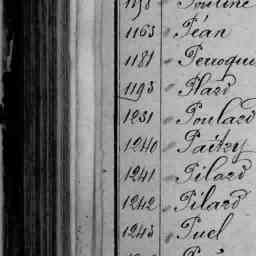 1163 Péan
1181 Perroque
1195 Plard
1231 Poulard
1240 Paitry
1241 Pilard
1242 Pilard
1243 Puel